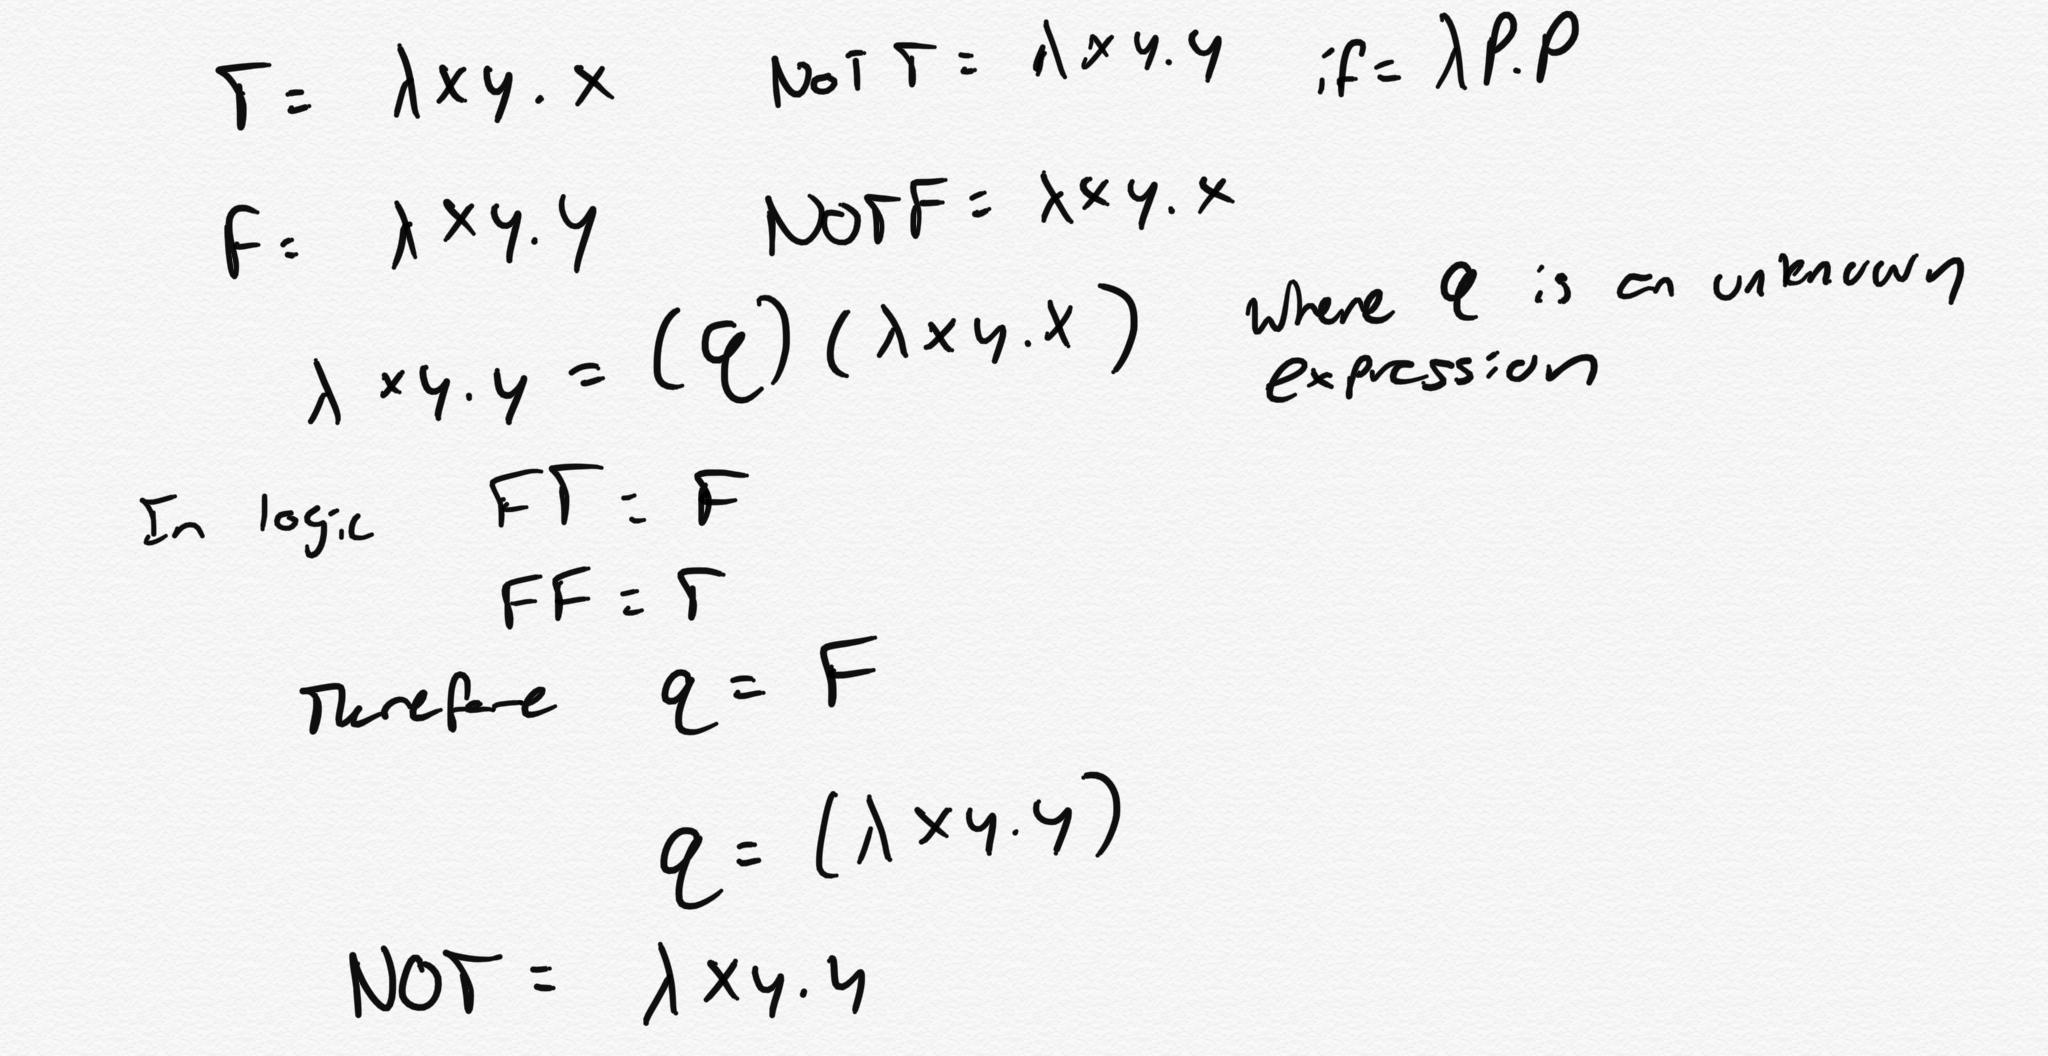 T = λxy.x NOT T = λxy.y if = λP.P
F = λxy.y NOT F = λxy.x
λxy.y = (q)(λxy.x) where q is an unknown
expression
In logic FT = F
FF = T
Therefore q = F
q = (λxy.y)
NOT = λxy.y